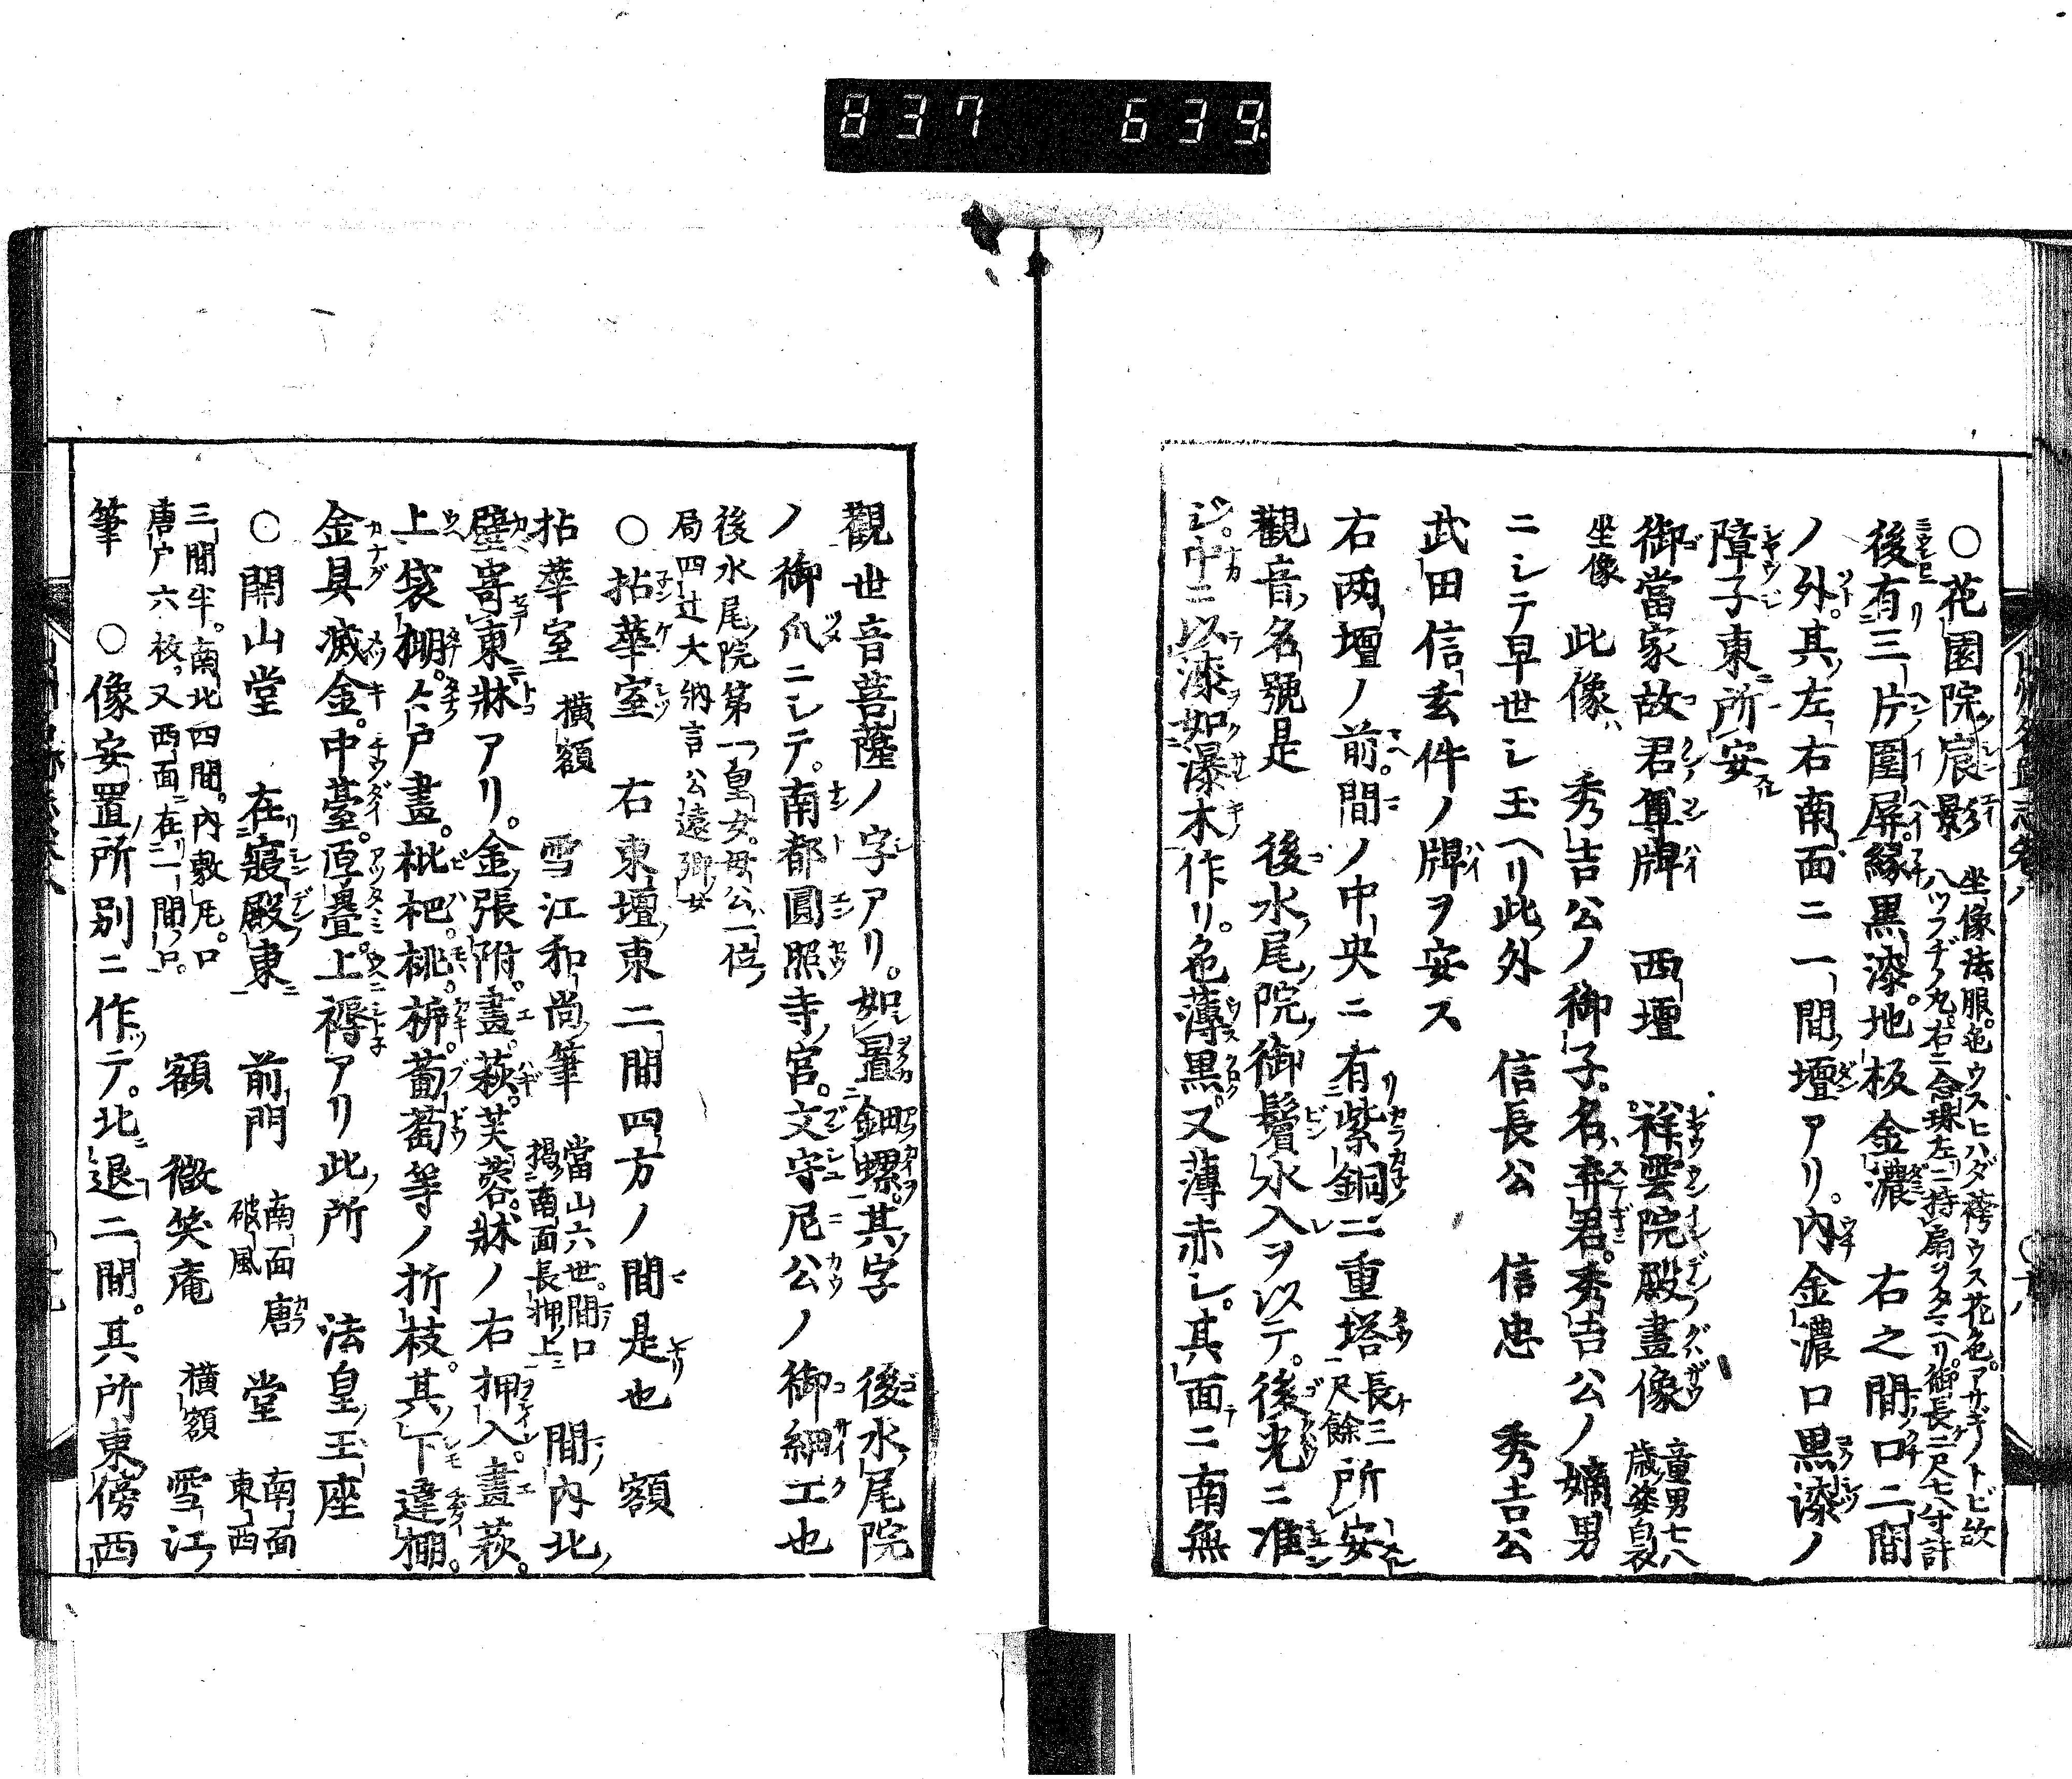 837 639
○花園院宸影 坐像法服。色ウスヒハダ袴ウス花色。アサギノトビ紋
八ツフヂノ丸。右ニ念珠左ニ持扇ヲタマヘリ。御長二尺七八寸計
後有三片圍屏。縁黒漆。地板金濃 右之間口二間
ノ外。其左右南面ニ一間壇アリ。內金濃口黒漆ノ
障子東所安
御當家故君尊牌 西壇 祥雲院殿畫像 童男七八歳姿白衣
坐像 此像ハ 秀吉公ノ御子。名ハ弃君。秀吉公ノ嫡男
ニシテ早世シ玉ヘリ此外 信長公 信忠 秀吉公
武田信玄件ノ牌ヲ安ス
右両壇ノ前。間ノ中央ニ有紫銅二重塔 長三尺餘 所安
觀音名號是 後水尾院御鬢水入ヲ以テ。後光ニ准
ジ。中ニ以漆如瀑木作リ。色薄黒。又薄赤シ。其面ニ南無
觀世音菩薩ノ字アリ。如置鈿螺。其字 後水尾院
ノ御爪ニシテ。南都圓照寺宮。文守尼公ノ御細工也
後水尾院第一皇女。母公一位
局四辻大納言公遠卿女
○拈華室 右東壇東二間四方ノ間是也 額
拈華室 横額 雪江和尚筆 當山六世。間口
掲南面長押上 間內北
壁寄東牀アリ。金張附。畫萩。芙蓉。牀ノ右押入。畫萩。
上袋棚。戸畫。枇杷。桃。柿。葡萄等ノ折枝。其下違棚。
金具滅金。中臺。厚疊。上褥アリ此所 法皇玉座
○開山堂 在寢殿東 前門 南面唐破風 堂 南面東西
三間半。南北四間。內敷瓦。口
唐戸六枚。又西面在一間口。 額 微笑庵 横額 雪江
筆 ○像安置所別ニ作テ。北退二間。其所東傍西